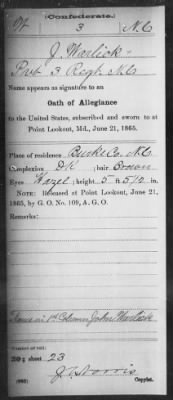 (Confederate.)
W 3 N.C.
J. Warlick
Pvt 3 Regt N.C.
Name appears as signature to an
Oath of Allegiance
to the United States, subscribed and sworn to at
Point Lookout, Md., June 21, 1865.
Place of residence Burke Co. N.C.
Complexion DK ; hair Brown
Eyes Hazel ; height 5 ft 5 1/2 in.
NOTE: Released at Point Lookout, June 21,
1865, by G. O. No. 109, A. G. O.
Remarks:
Name in 1st Column John Warlick
sheet 23
Copyist.